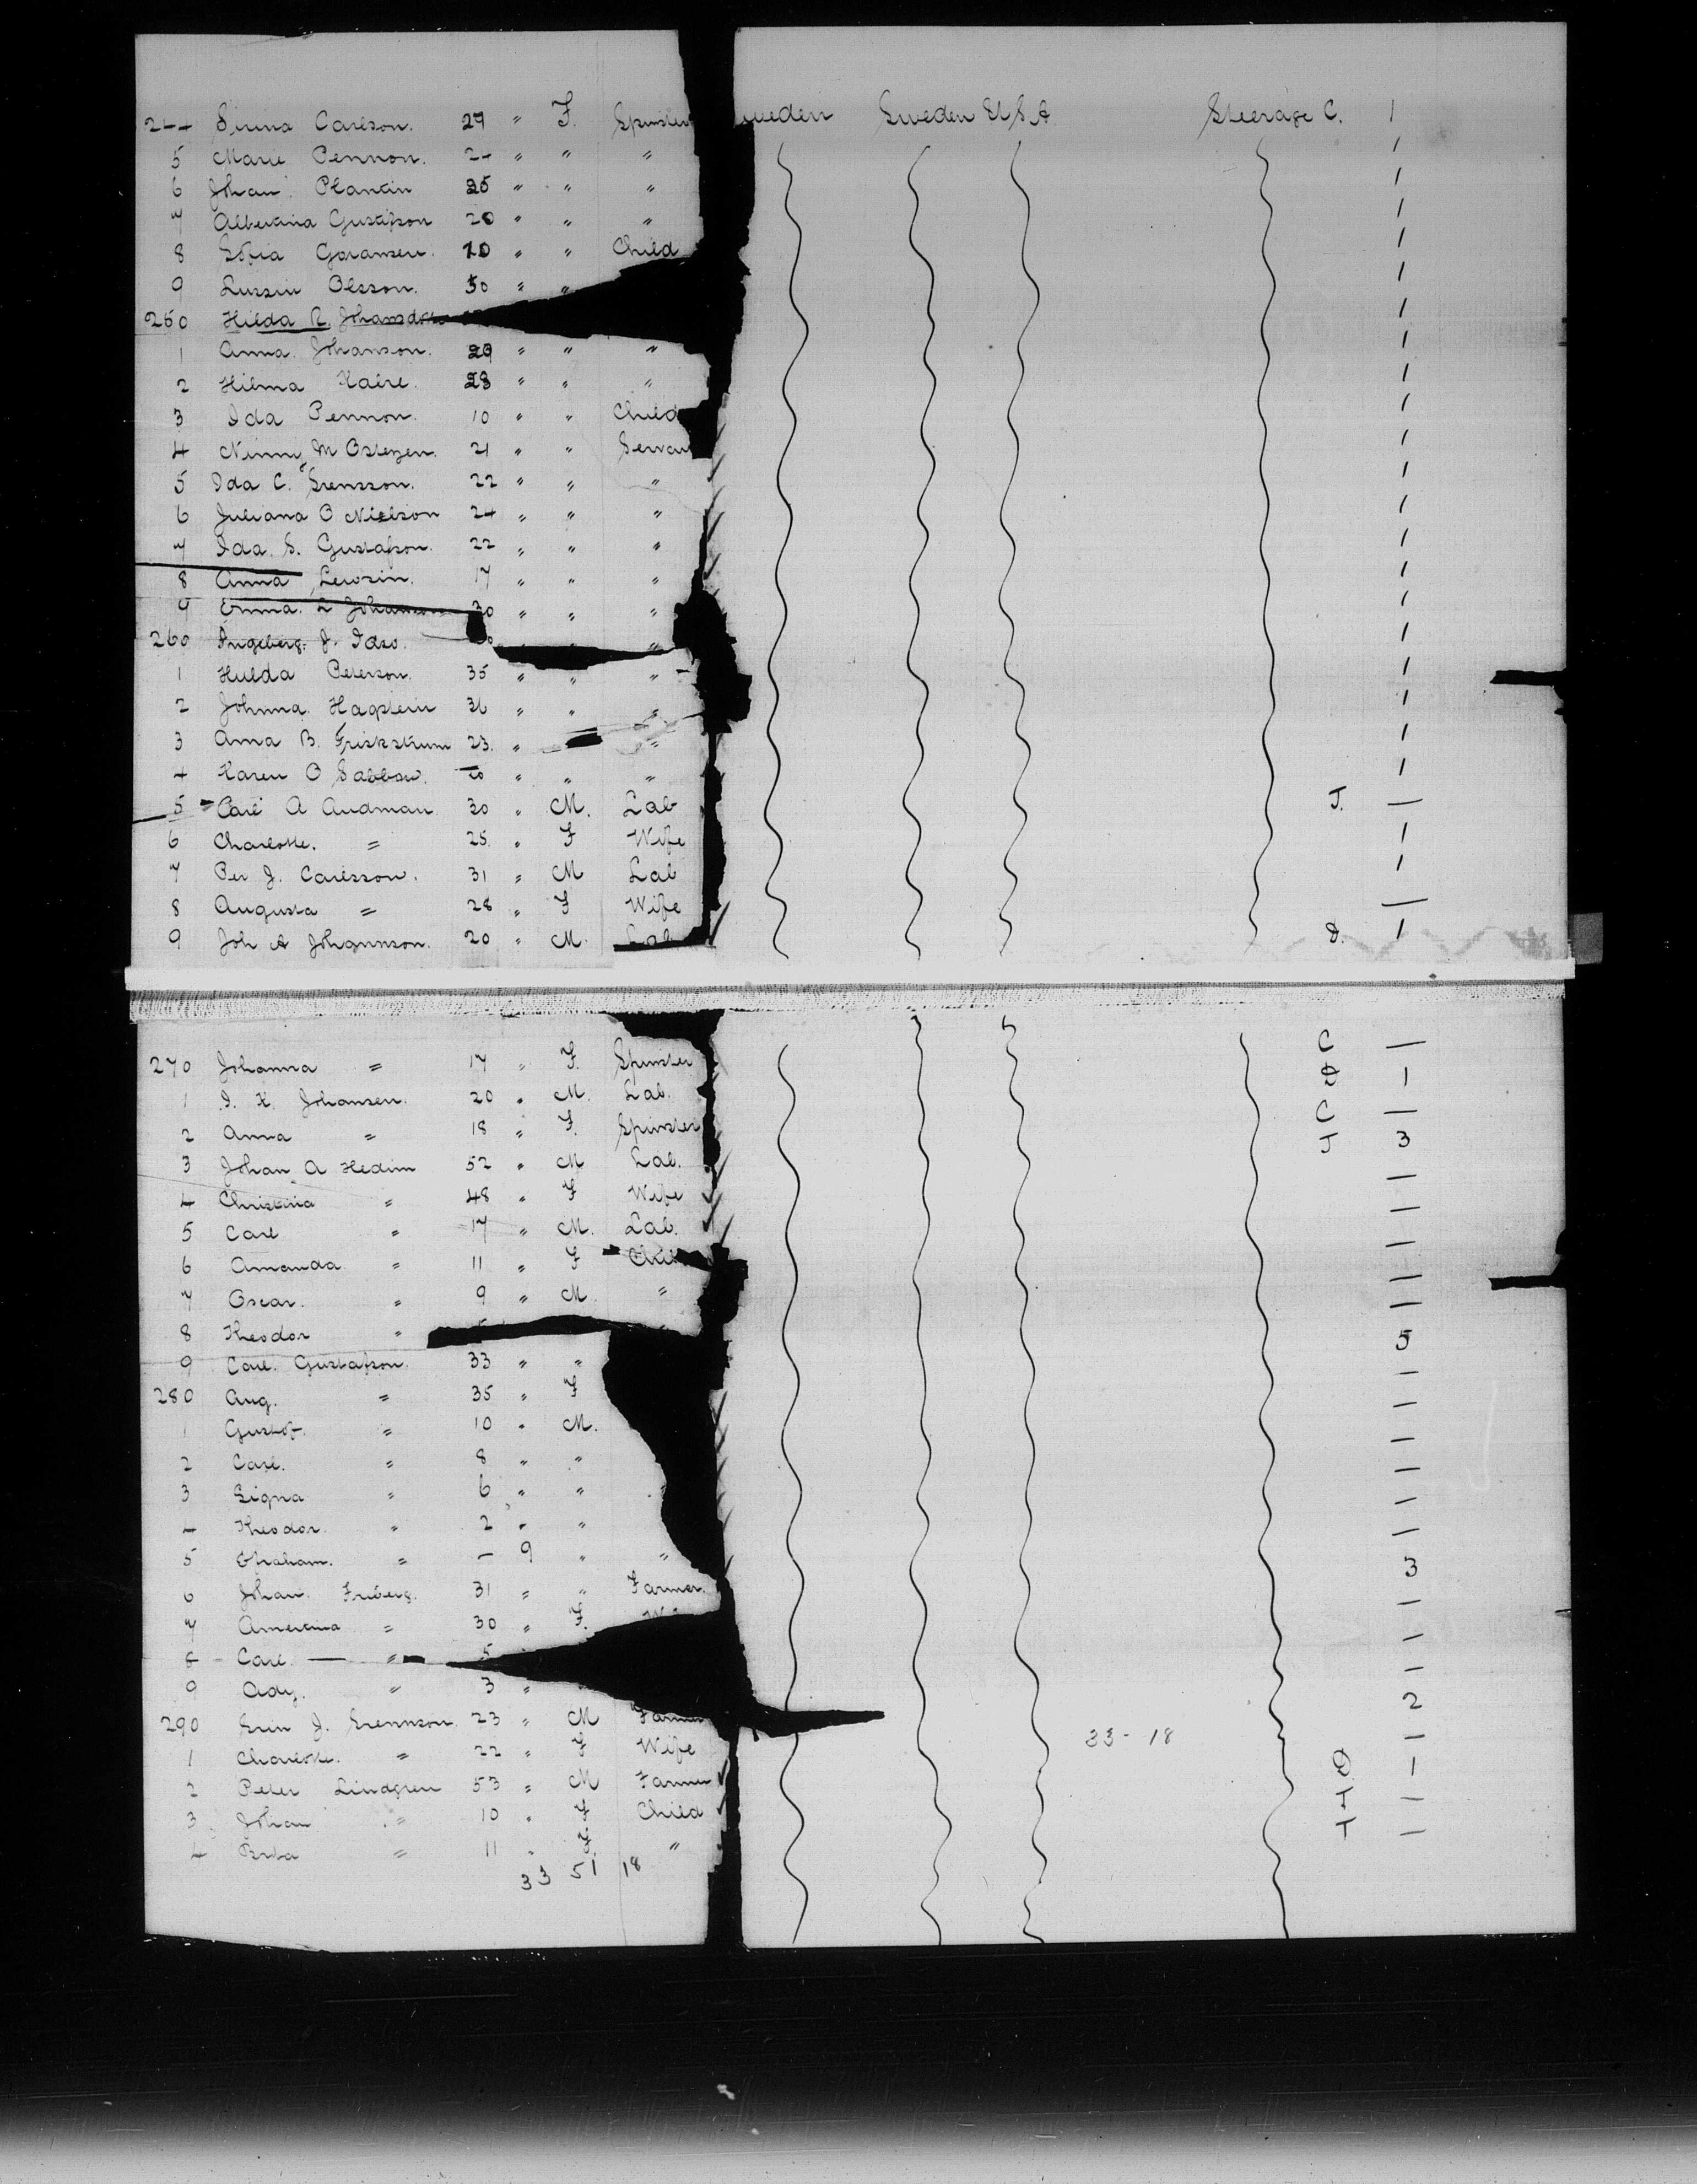 244 Carlson. 27 " F. Spinster weden Sweden U S A Steerage C. 1
5 Marie Pennon. 24 " " " 1
6 Johan Plantin 25 " " " 1
7 Albertina Gustafson 20 " " " 1
8 Sofia Goransen. 10 " " Child 1
9 Olsson. 50 " " 1
250 Hilda R. 1
1 Anna Johanson. 29 " " " 1
2 Hilma 28 " " " 1
3 Ida Pennon. 10 " " Child 1
4 M 21 " " Servan 1
5 Ida C. Svensson. 22 " " " 1
6 Juliana O Nielson 24 " " " 1
7 Ida S. Gustafson. 22 " " " 1
8 Anna 17 " " " 1
9 Emma. L 30 " " " 1
260 Ingeberg. J. " " 1
1 Hulda Peterson. 35 " " " 1
2 Johnna 36 " " " 1
3 Anna B. 23. " " 1
4 Karen O 20 " " " 1
5 Carl A Audman 30 " M. Lab J. —
6 Charlotte. " 25. " F Wife 1
7 Per J. Carlsson. 31 " M Lab 1
8 Augusta " 28 " F Wife —
9 Joh A Johannson. 20 " M. Lab D. 1
270 Johanna " 17 " F. Spinster C —
1 J. K. Johansen. 20 " M. Lab. D 1
2 Anna " 18 " F. Spinster C —
3 Johan A Hedim 52 " M Lab. J 3
4 Christina " 48 " F Wife —
5 Carl " 17 " M. Lab. —
6 Amanda " 11 " F Chil —
7 Oscar. " 9 " M " —
8 Theodor " —
9 Carl. Gustafson. 33 " " 5
280 Aug. " 35 " F —
1 Gustof. " 10 " M. —
2 Carl. " 8 " " —
3 Signa " 6 " " —
4 Theodor. " 2 " " —
5 " — 9 " " —
6 Johan. Friberg. 31 " " Farmer. 3
7 " 30 " F. —
8 Carl. — " 5 —
9 Ady. " 3 " —
290 J. Svennson. 23 " M Farmer 2
33 - 18
1 Charlotte. " 22 " F Wife —
2 Peter Lindgren 53 " M Farmer D. 1
3 Johan " 10 " F Child T —
4 " 11 " F " T —
33 51 18